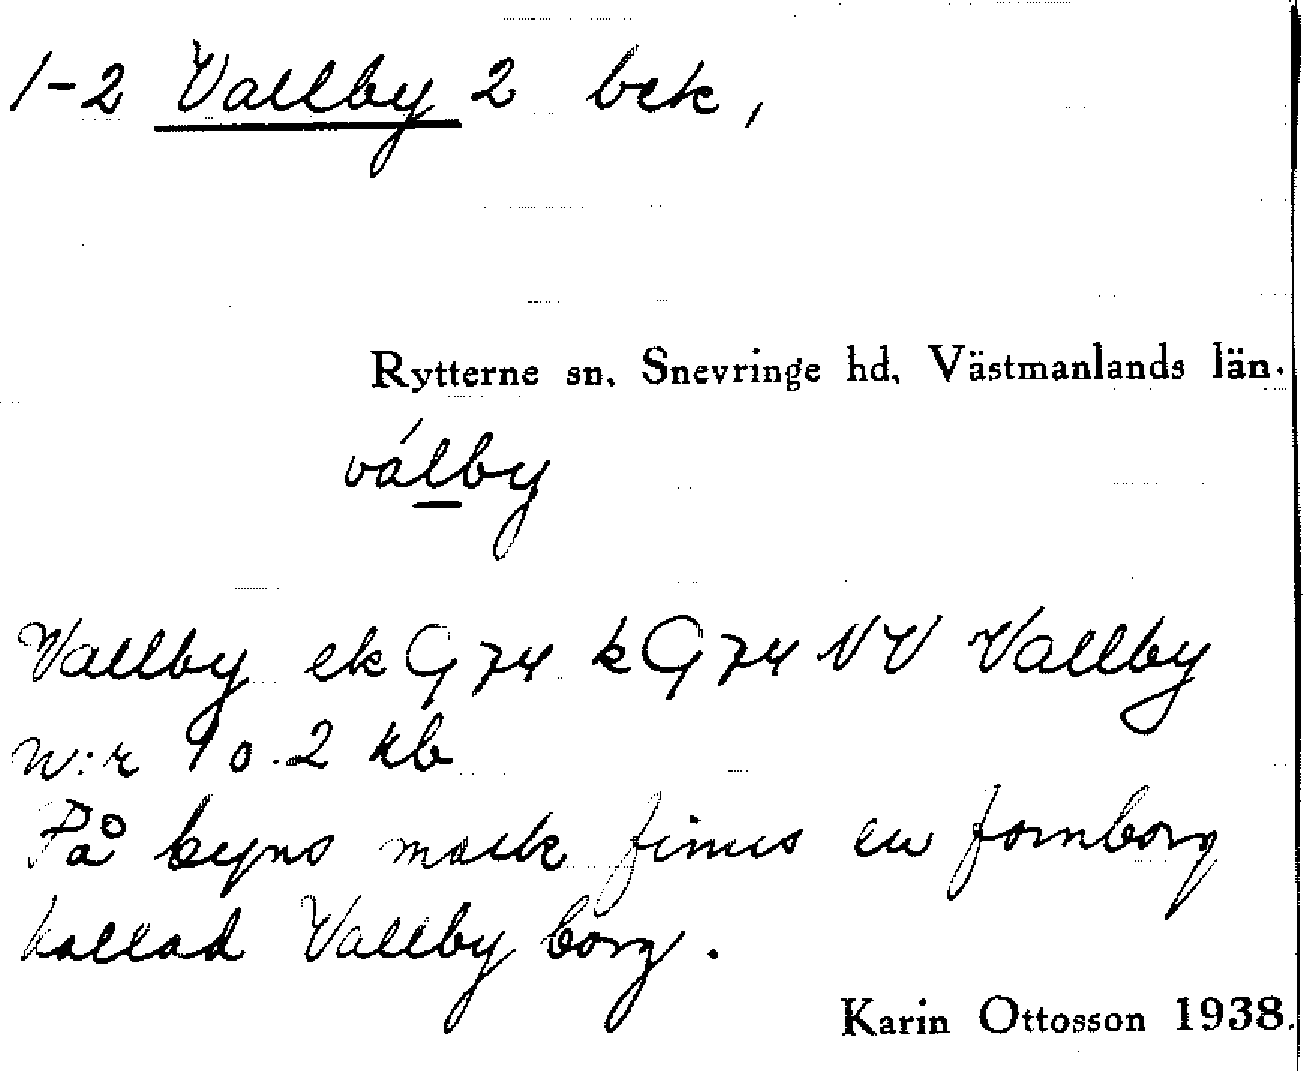 1-2 Vallby 2 bek,
Rytterne sn. Snevringe hd, Västmanlands län.
válby
Vallby ek G 74 k G 74 NV Vallby
n:r 1 o. 2 kb
På byns mark finns en fornborg
kallad Vallby borg.
Karin Ottosson 1938.